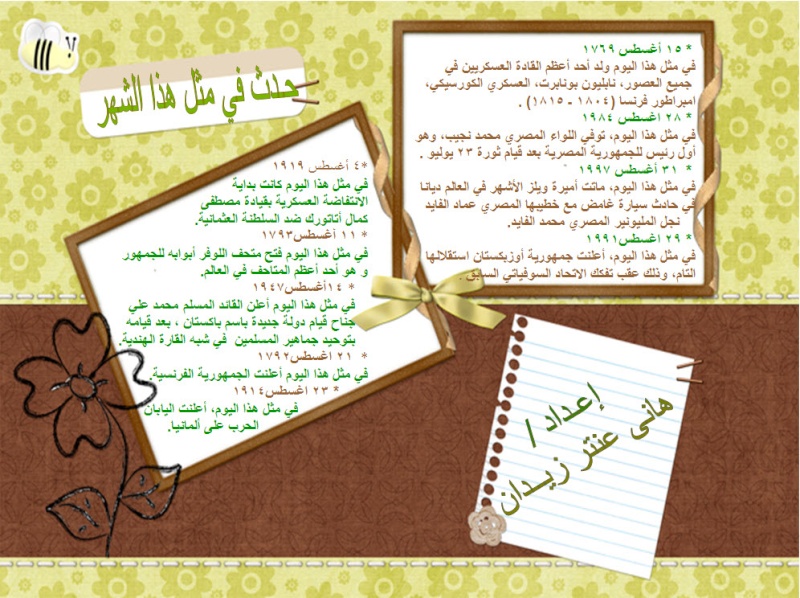 حدث في مثل هذا الشهر
* ١٥ أغسطس ١٧٦٩
في مثل هذا اليوم ولد أحد أعظم القادة العسكريين في
جميع العصور، نابليون بونابرت، العسكري الكورسيكي،
امبراطور فرنسا (١٨٠٤ - ١٨١٥) .
* ٢٨ اغسطس ١٩٨٤
في مثل هذا اليوم، توفي اللواء المصري محمد نجيب، وهو
أول رئيس للجمهورية المصرية بعد قيام ثورة ٢٣ يوليو .
* ٣١ أغسطس ١٩٩٧
في مثل هذا اليوم، ماتت أميرة ويلز الأشهر في العالم ديانا
في حادث سيارة غامض مع خطيبها المصري عماد الفايد
نجل المليونير المصري محمد الفايد.
* ٢٩ اغسطس١٩٩١
في مثل هذا اليوم، أعلنت جمهورية أوزبكستان استقلالها
التام، وذلك عقب تفكك الاتحاد السوفياتي السابق .
*٤ أغسطس ١٩١٩
في مثل هذا اليوم كانت بداية
الانتفاضة العسكرية بقيادة مصطفى
كمال أتاتورك ضد السلطنة العثمانية.
* ١١ أغسطس١٧٩٣
في مثل هذا اليوم فتح متحف اللوفر أبوابه للجمهور
و هو أحد أعظم المتاحف في العالم.
* ١٤اغسطس١٩٤٧
في مثل هذا اليوم أعلن القائد المسلم محمد علي
جناح قيام دولة جديدة باسم باكستان ، بعد قيامه
بتوحيد جماهير المسلمين في شبه القارة الهندية.
* ٢١ اغسطس١٧٩٢
في مثل هذا اليوم أعلنت الجمهورية الفرنسية.
* ٢٣ اغسطس١٩١٤
في مثل هذا اليوم، أعلنت اليابان
الحرب على ألمانيا.
إعداد /
هانى عنتر زيدان